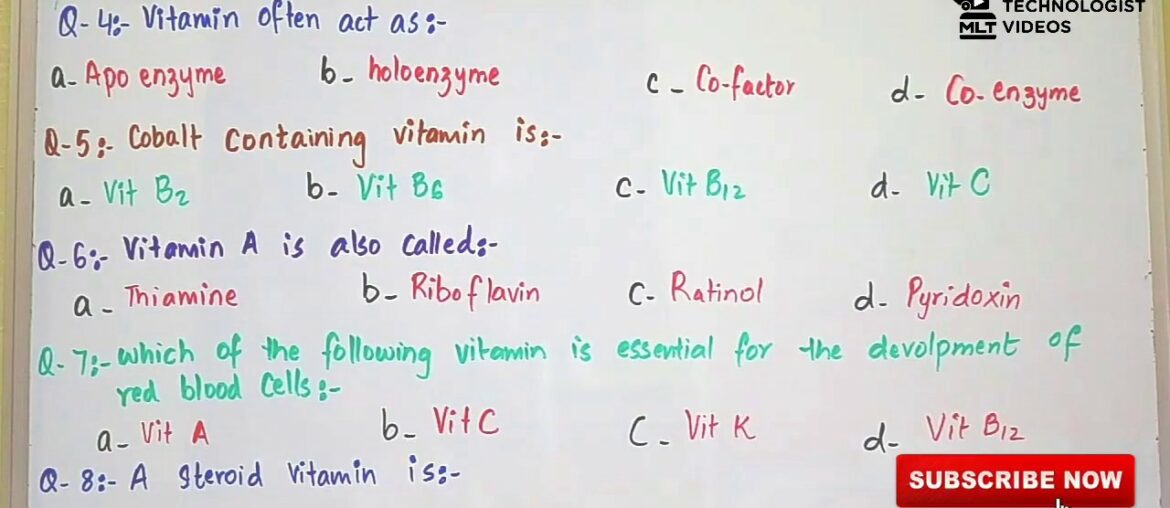 TECHNOLOGIST
MLT VIDEOS
Q-4:- Vitamin often act as:-
a- Apo enzyme b- holoenzyme c- Co-factor d- Co-enzyme
Q-5:- Cobalt Containing vitamin is:-
a- Vit B2 b- Vit B6 C- Vit B12 d- Vit C
Q-6:- Vitamin A is also Called:-
a- Thiamine b- Riboflavin C- Ratinol d- Pyridoxin
Q-7:- which of the following vitamin is essential for the devolpment of
red blood Cells:-
a- Vit A b- Vit C C- Vit K d- Vit B12
Q-8:- A Steroid Vitamin is:-
SUBSCRIBE NOW